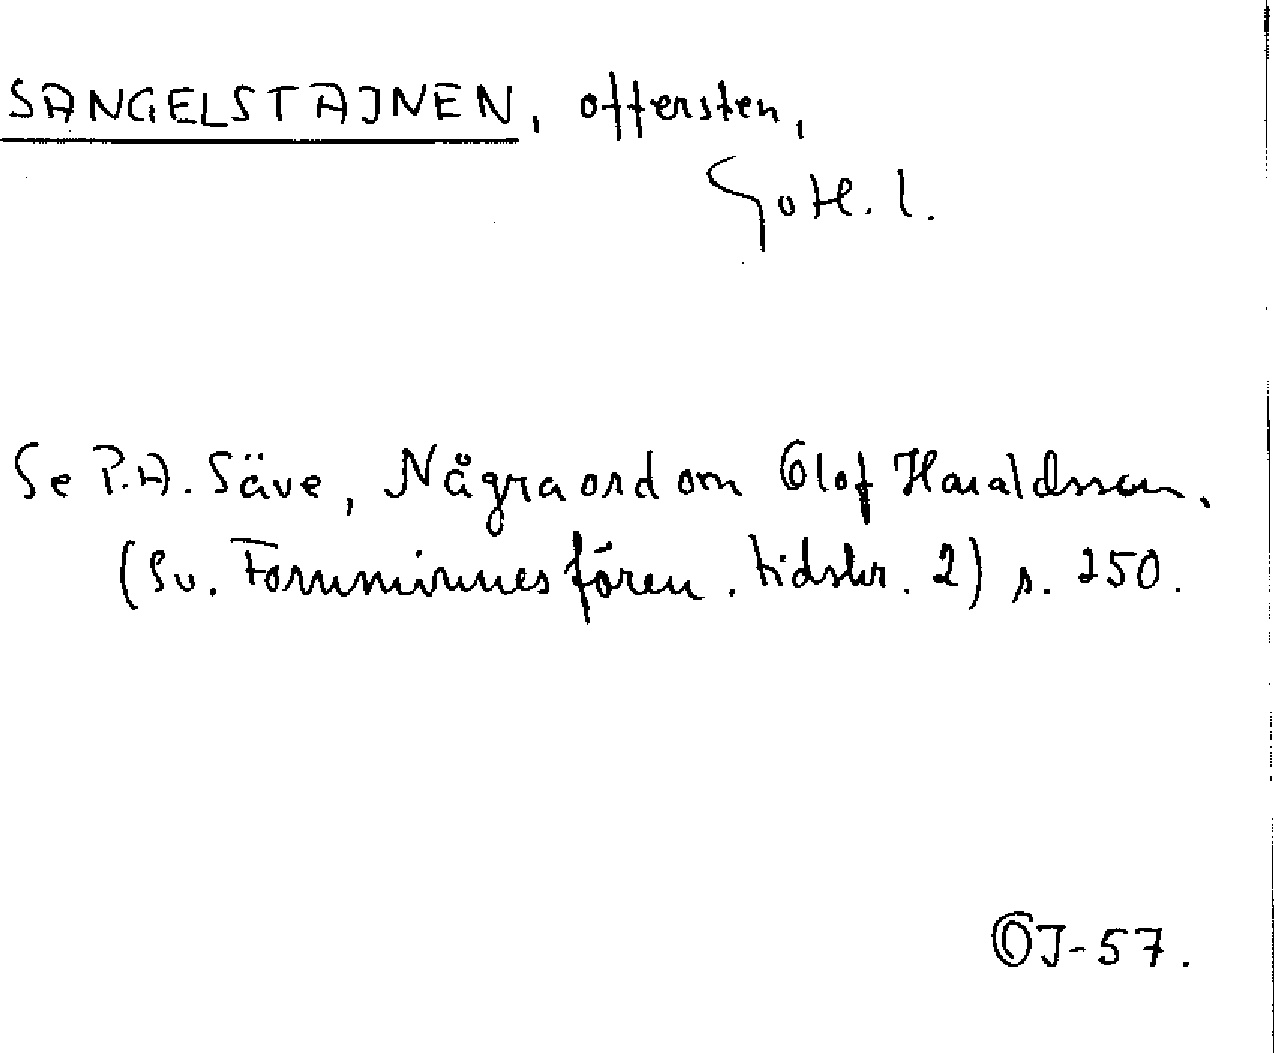 SANGELSTAJNEN, offersten,
Gotl. l.
Se P.A. Säve, Några ord om Olof Haraldsson.
(Sv. Fornminnesfören. tidskr. 2) s. 250.
OJ-57.